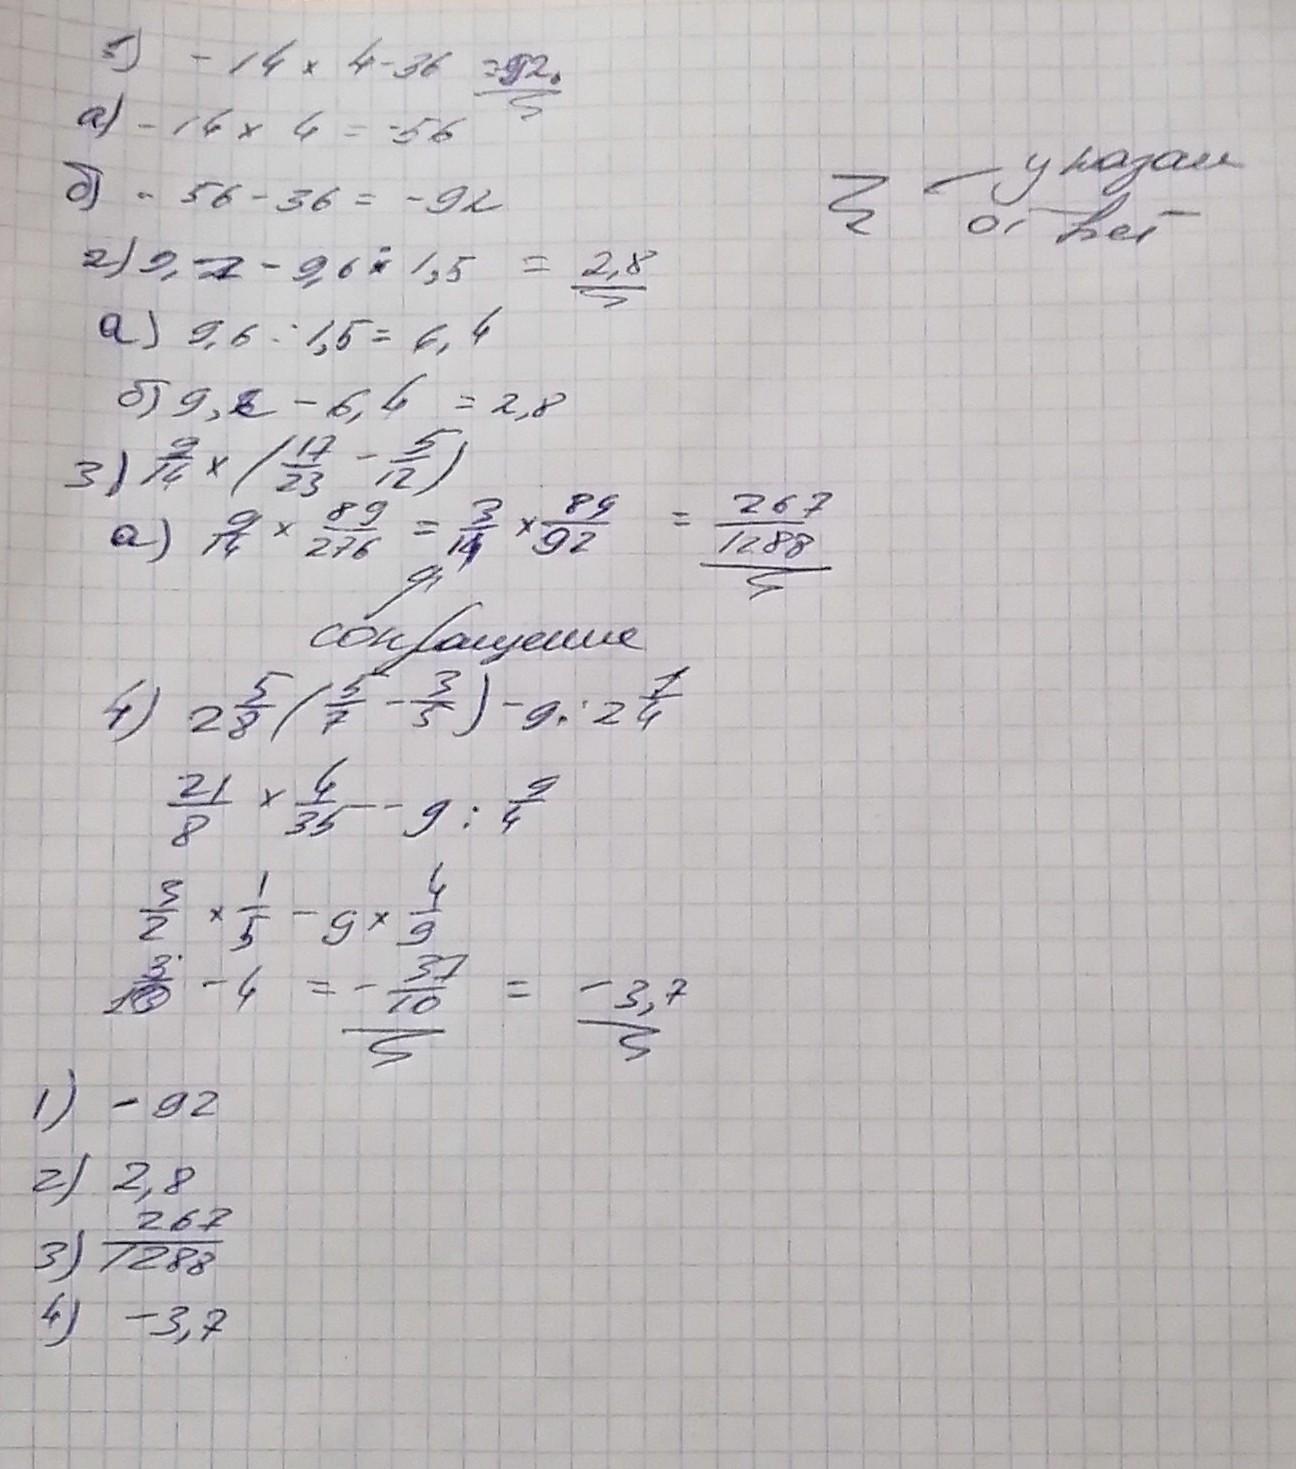 1) -14 × 4-36 =-92.
а) -14 × 4 = -56
б) - 56-36 = -92
указан
ответ
2) 9,2 - 9,6 : 1,5 = 2,8
а) 9,6 : 1,5 = 6,4
б) 9,2 - 6,4 = 2,8
3) 9/14 × (17/23 - 5/12)
а) 9/14 × 89/276 = 3/14 × 89/92 = 267/1288
сокращение
4) 2 5/8 (5/7 - 3/5) - 9 : 2 1/4
21/8 × 4/35 - 9 : 9/4
3/2 × 1/5 - 9 × 4/9
3/10 - 4 = - 37/10 = -3,7
1) -92
2) 2,8
3) 267/1288
4) -3,7